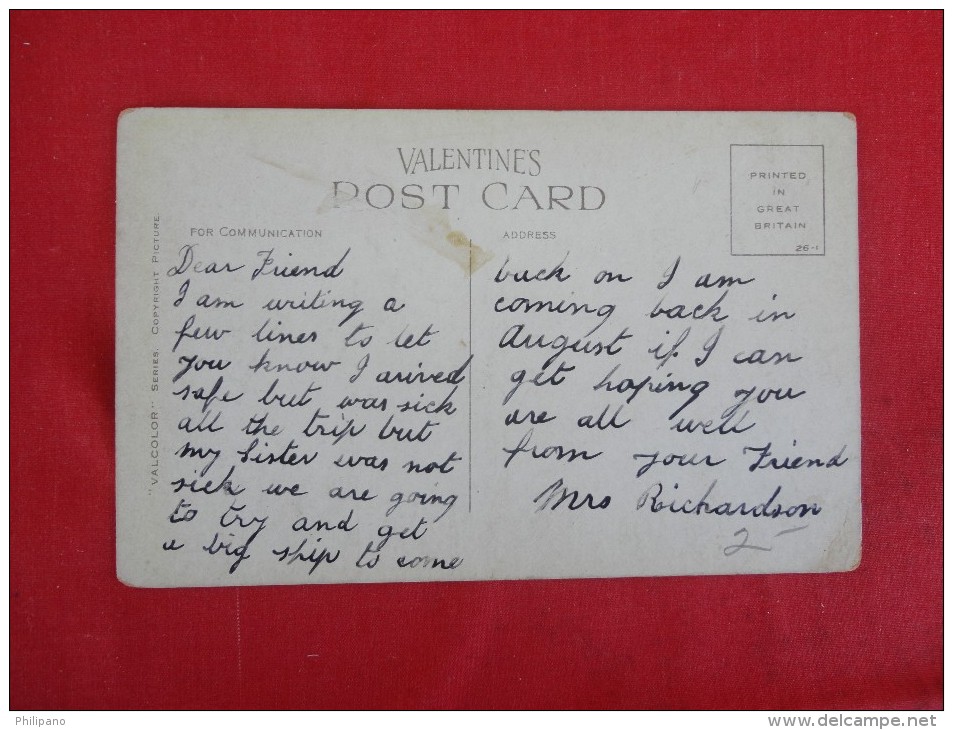 VALENTINE'S
POST CARD
FOR COMMUNICATION
ADDRESS
PRINTED
IN
GREAT
BRITAIN
26-1
"VALCOLOR" SERIES. COPYRIGHT PICTURE
Dear Friend
I am writing a
few lines to let
you know I arived
safe but was sick
all the trip but
my Sister was not
sick we are going
to try and get
a big ship to come
back on I am
coming back in
August if I can
get hoping you
are all well
from your Friend
Mrs Richardson
2-
Philipano
www.delcampe.net